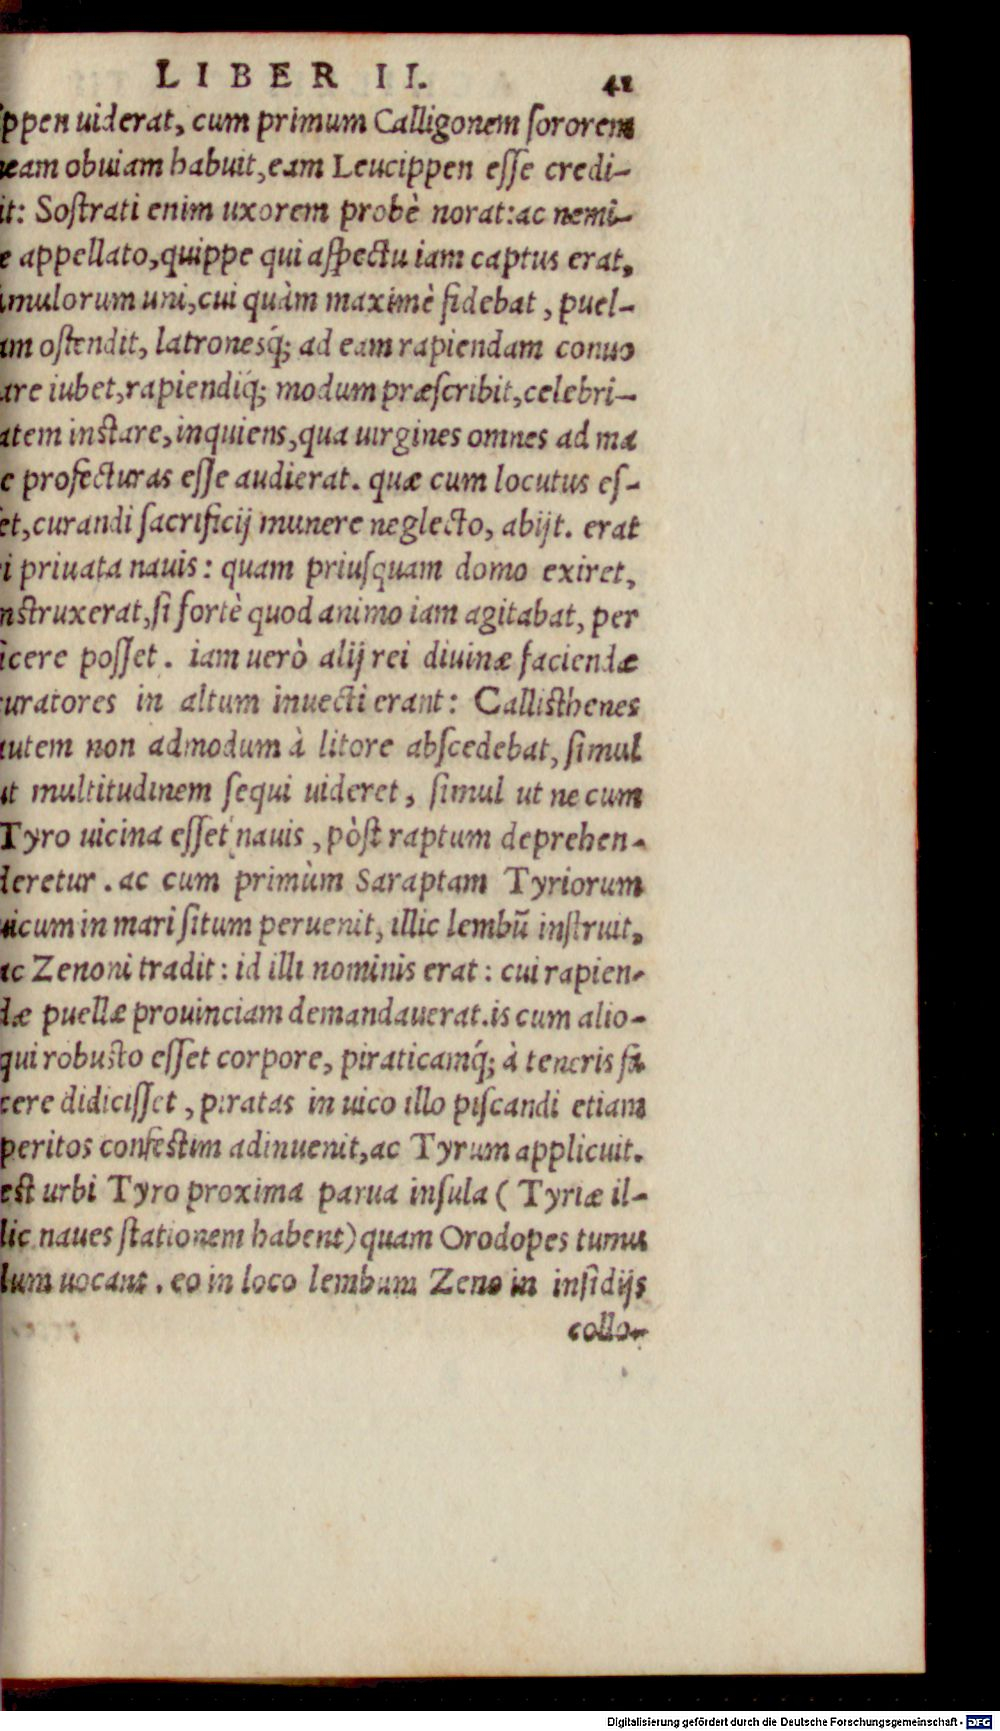 LIBER II. 41
ppen uiderat, cum primum Calligonem ſororem
eam obuiam habuit, eam Leucippen eſſe credi-
it: Soſtrati enim uxorem probè norat: ac nemi-
e appellato, quippe qui aſpectu iam captus erat,
mulorum uni, cui quàm maximè fidebat, puel-
am oſtendit, latronesq́; ad eam rapiendam conuo
are iubet, rapiendiq́; modum præſcribit, celebri-
atem inſtare, inquiens, qua uirgines omnes ad ma
e profecturas eſſe audierat. quæ cum locutus eſ-
et, curandi ſacrificij munere neglecto, abijt. erat
i priuata nauis: quam priuſquam domo exiret,
nſtruxerat, ſi fortè quod animo iam agitabat, per
icere poſſet. iam uerò alij rei diuinæ faciendæ
uratores in altum inuecti erant: Calliſthenes
utem non admodum à litore abſcedebat, ſimul
ut multitudinem ſequi uideret, ſimul ut ne cum
Tyro uicina eſſet nauis, pòſt raptum deprehen-
deretur. ac cum primùm Saraptam Tyriorum
uicum in mari ſitum peruenit, illic lembū inſtruit,
ac Zenoni tradit: id illi nominis erat: cui rapien-
dæ puellæ prouinciam demandauerat. is cum alio-
qui robuſto eſſet corpore, piraticamq́; à teneris fa
cere didiciſſet, piratas in uico illo piſcandi etiam
peritos confeſtim adinuenit, ac Tyrum applicuit.
eſt urbi Tyro proxima parua inſula (Tyriæ il-
lic naues ſtationem habent) quam Orodopes tumu
lum uocant. eo in loco lembum Zeno in inſidijs
collo-
Digitalisierung gefördert durch die Deutsche Forschungsgemeinschaft - DFG